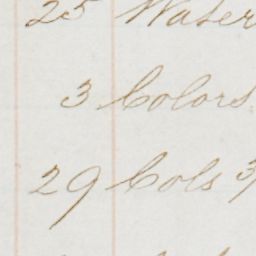 25 Water
3 Colors
29 Cols 3/